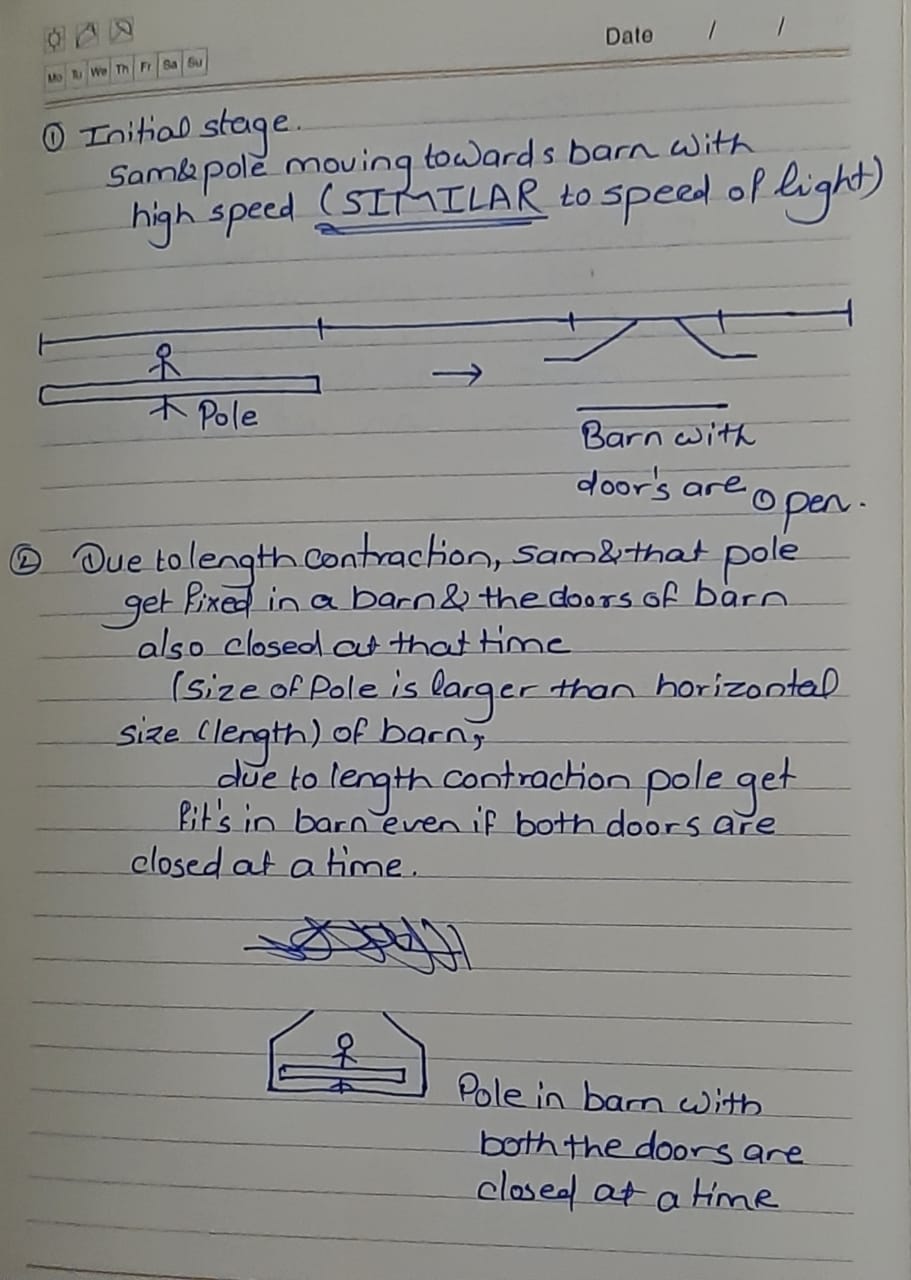 Date / /
Mo Tu We Th Fr Sa Su
① Initial stage.
Sam & pole moving towards barn with
high speed (SIMILAR to speed of light)
Pole
Barn with
door's are open.
② Due to length contraction, Sam & that pole
get fixed in a barn & the doors of barn
also closed at that time
(size of Pole is larger than horizontal
size (length) of barn,
due to length contraction pole get
fit's in barn even if both doors are
closed at a time.
Pole in barn with
both the doors are
closed at a time